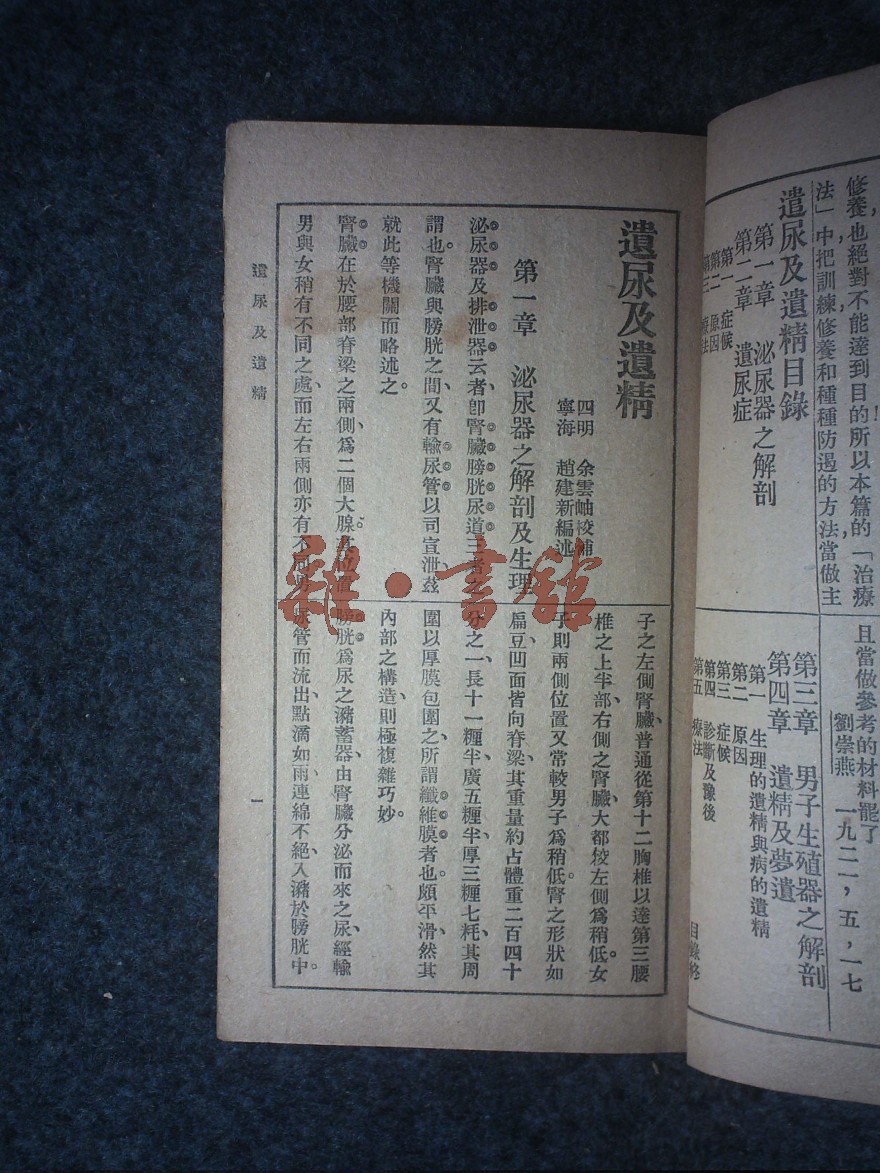 修養也絕對不能達到目的所以本篇的「治療
法」中把訓練修養和種種防遏的方法當做主
且當做參考的材料罷了
劉崇燕 一九二一，五，一七
遺尿及遺精目錄
第一章 泌尿器之解剖
第二章 遺尿症
第一 症候
第二 原因
第三 療法
第三章 男子生殖器之解剖
第四章 遺精及夢遺
第一 生理的遺精與病的遺精
第二 原因
第三 症候
第四 診斷及豫後
第五 療法
遺尿及遺精
四明 余雲岫校補
寧海 趙建新編述
第一章 泌尿器之解剖及生理
泌尿器及排泄器云者、卽腎臟膀胱尿道三者之
謂也。腎臟與膀胱之間、又有輸尿管以司宣泄、茲
就此等機關而略述之。
腎臟在於腰部脊梁之兩側、爲二個大腺、其位置
男與女稍有不同之處、而左右兩側亦有不同、男
子之左側腎臟、普通從第十二胸椎以達第三腰
椎之上半部、右側之腎臟、大都較左側爲稍低。女
子則兩側位置、又常較男子爲稍低。腎之形狀如
扁豆、凹面皆向脊梁、其重量約占體重二百四十
分之一、長十一糎半、廣五糎半、厚三糎七粍、其周
圍以厚膜包圍之、所謂纖維膜者也、頗平滑、然其
內部之構造、則極複雜巧妙。
膀胱爲尿之瀦蓄器、由腎臟分泌而來之尿、經輸
尿管而流出、點滴如雨、連綿不絕、入瀦於膀胱中。
遺尿及遺精
一
雜·書館